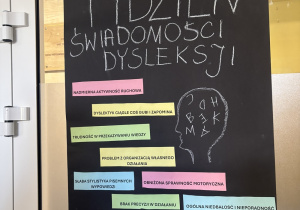 TYDZIEŃ
ŚWIADOMOŚCI
DYSLEKSJI
NADMIERNA AKTYWNOŚĆ RUCHOWA
DYSLEKTYK CIĄGLE COŚ GUBI I ZAPOMINA
TRUDNOŚĆ W PRZEKAZYWANIU WIEDZY
PROBLEM Z ORGANIZACJĄ WŁASNEGO
DZIAŁANIA
SŁABA STYLISTYKA PISEMNYCH
WYPOWIEDZI
OBNIŻONA SPRAWNOŚĆ MOTORYCZNA
BRAK PRECYZJI W DZIAŁANIU
OGÓLNA NIEDBAŁOŚĆ I NIEPORADNOŚĆ